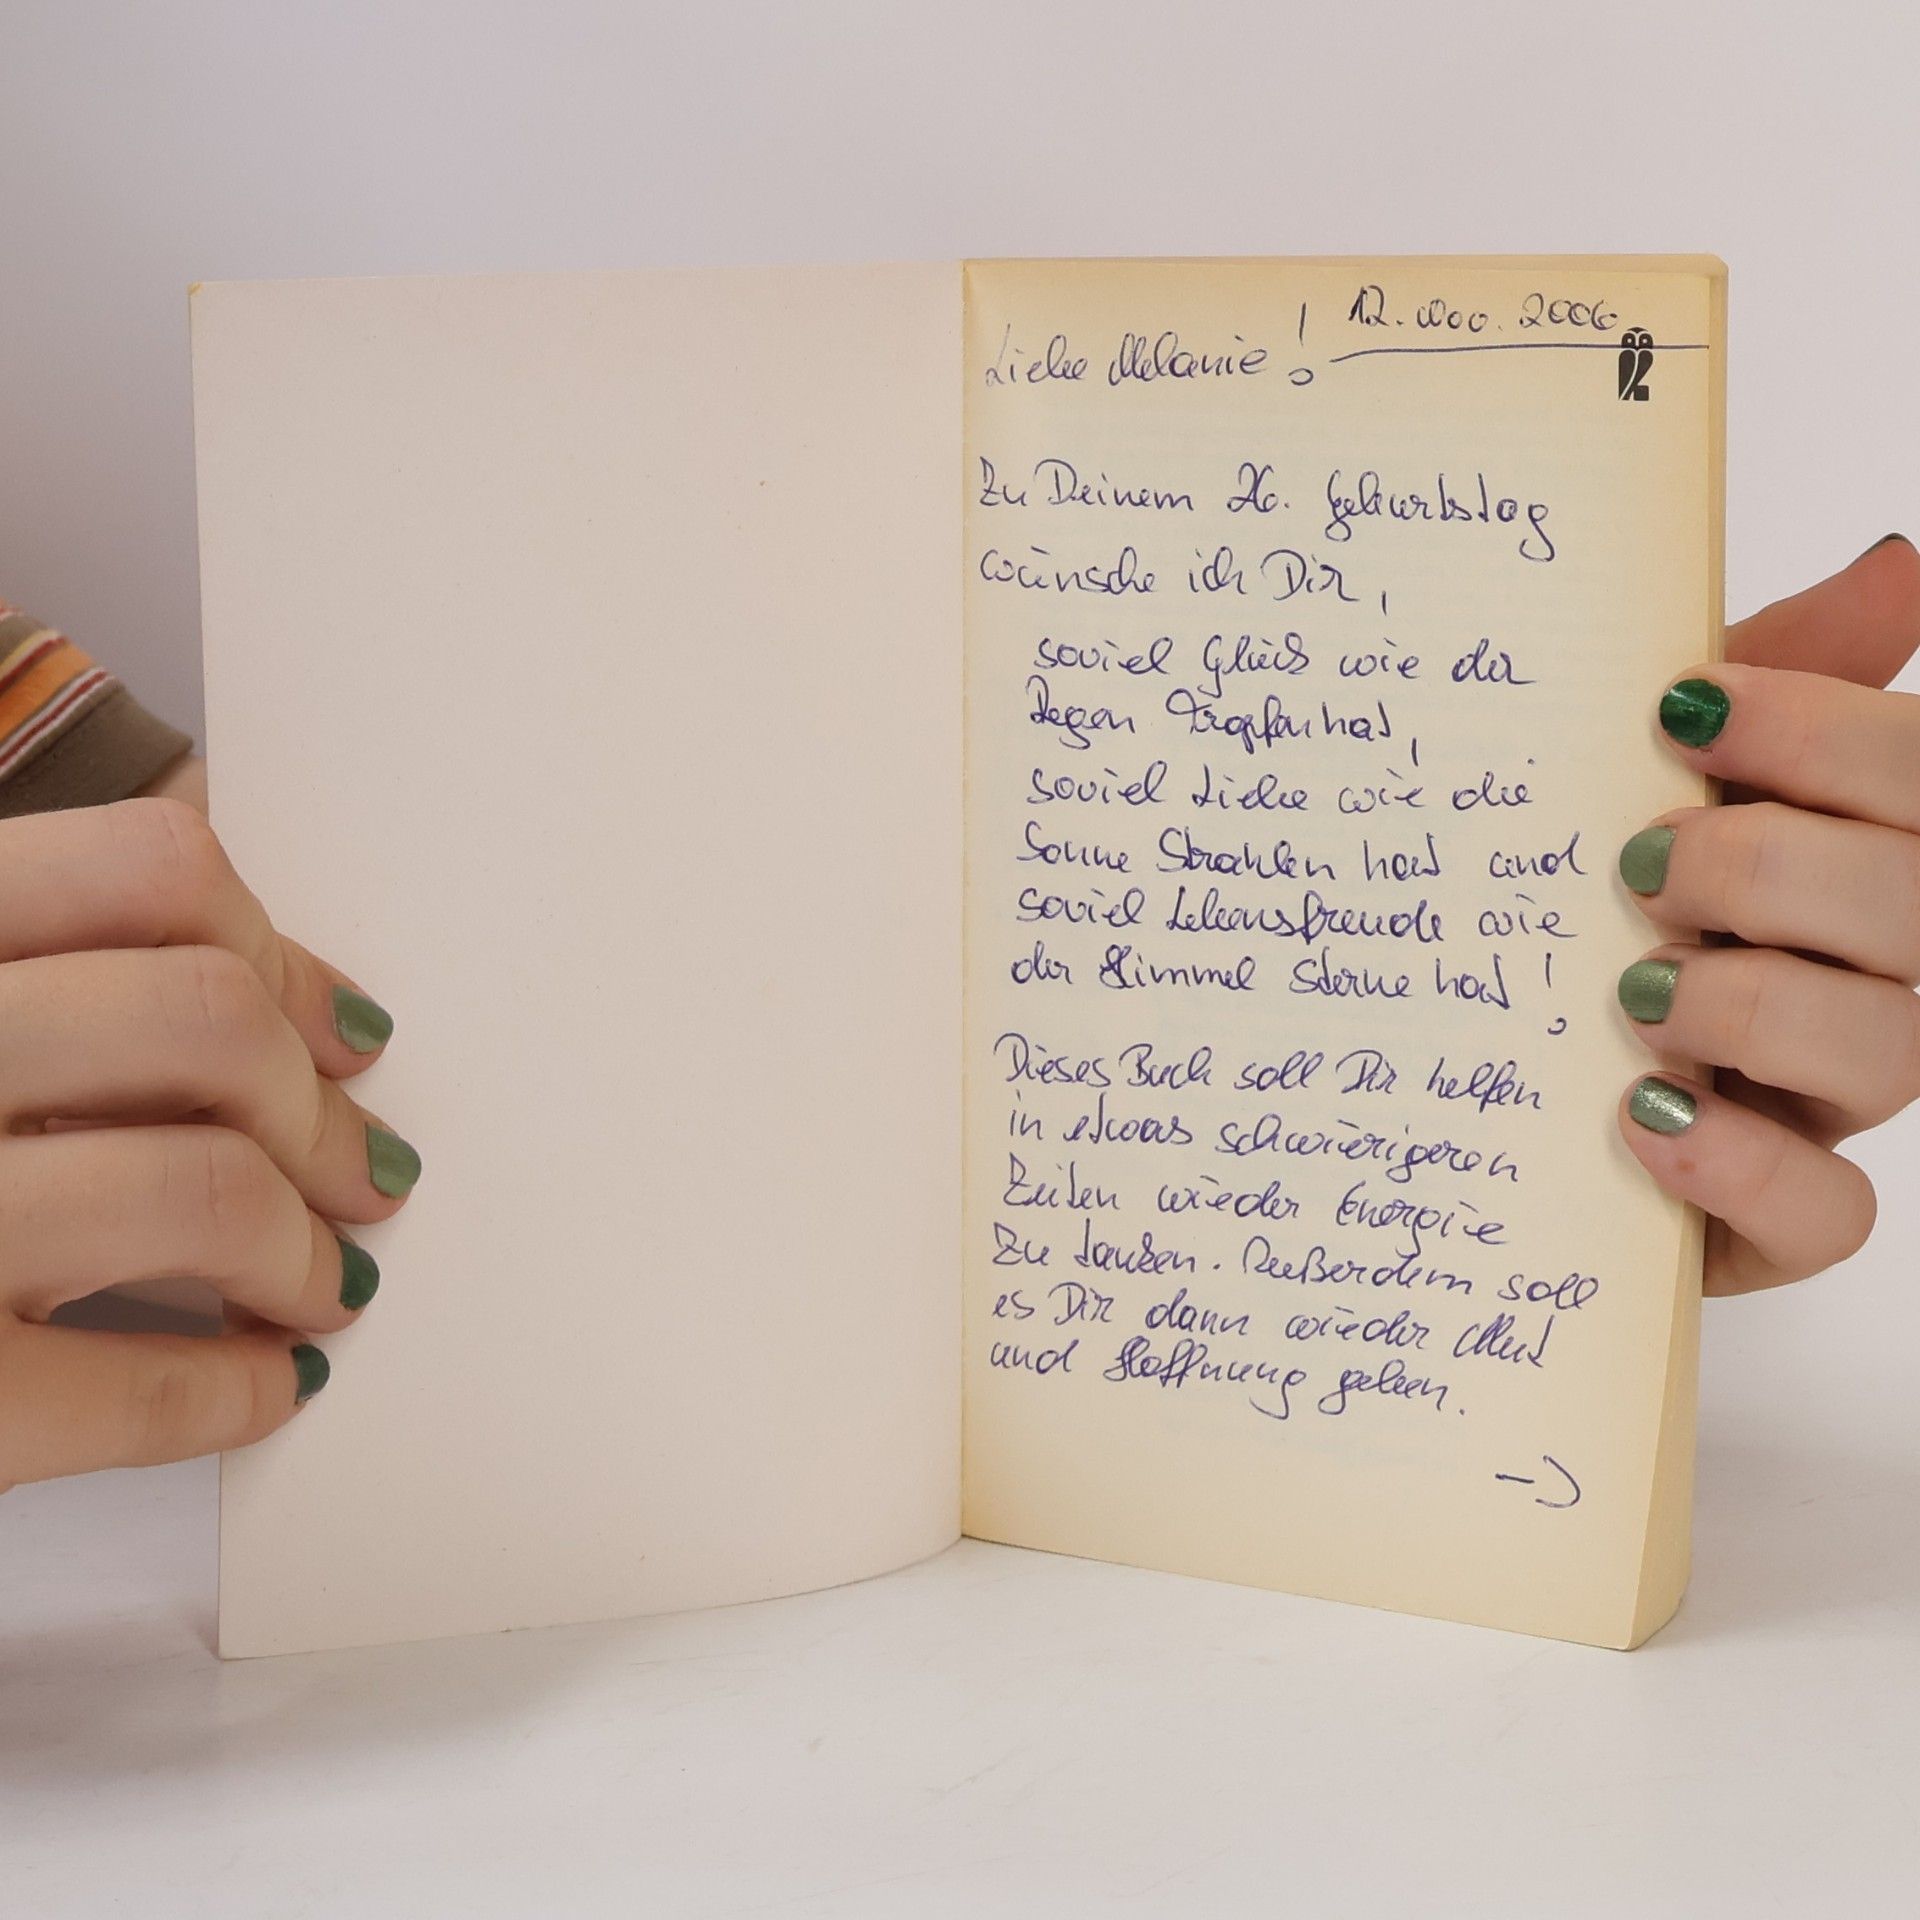 12. Nov. 2006
Liebe Melanie!
Zu Deinem 26. Geburtstag
wünsche ich Dir,
soviel Glück wie der
Regen Tropfen hat,
soviel Liebe wie die
Sonne Strahlen hat und
soviel Lebensfreude wie
der Himmel Sterne hat!
Dieses Buch soll Dir helfen
in etwas schwierigeren
Zeiten wieder Energie
zu tanken. Außerdem soll
es Dir dann wieder Mut
und Hoffnung geben.